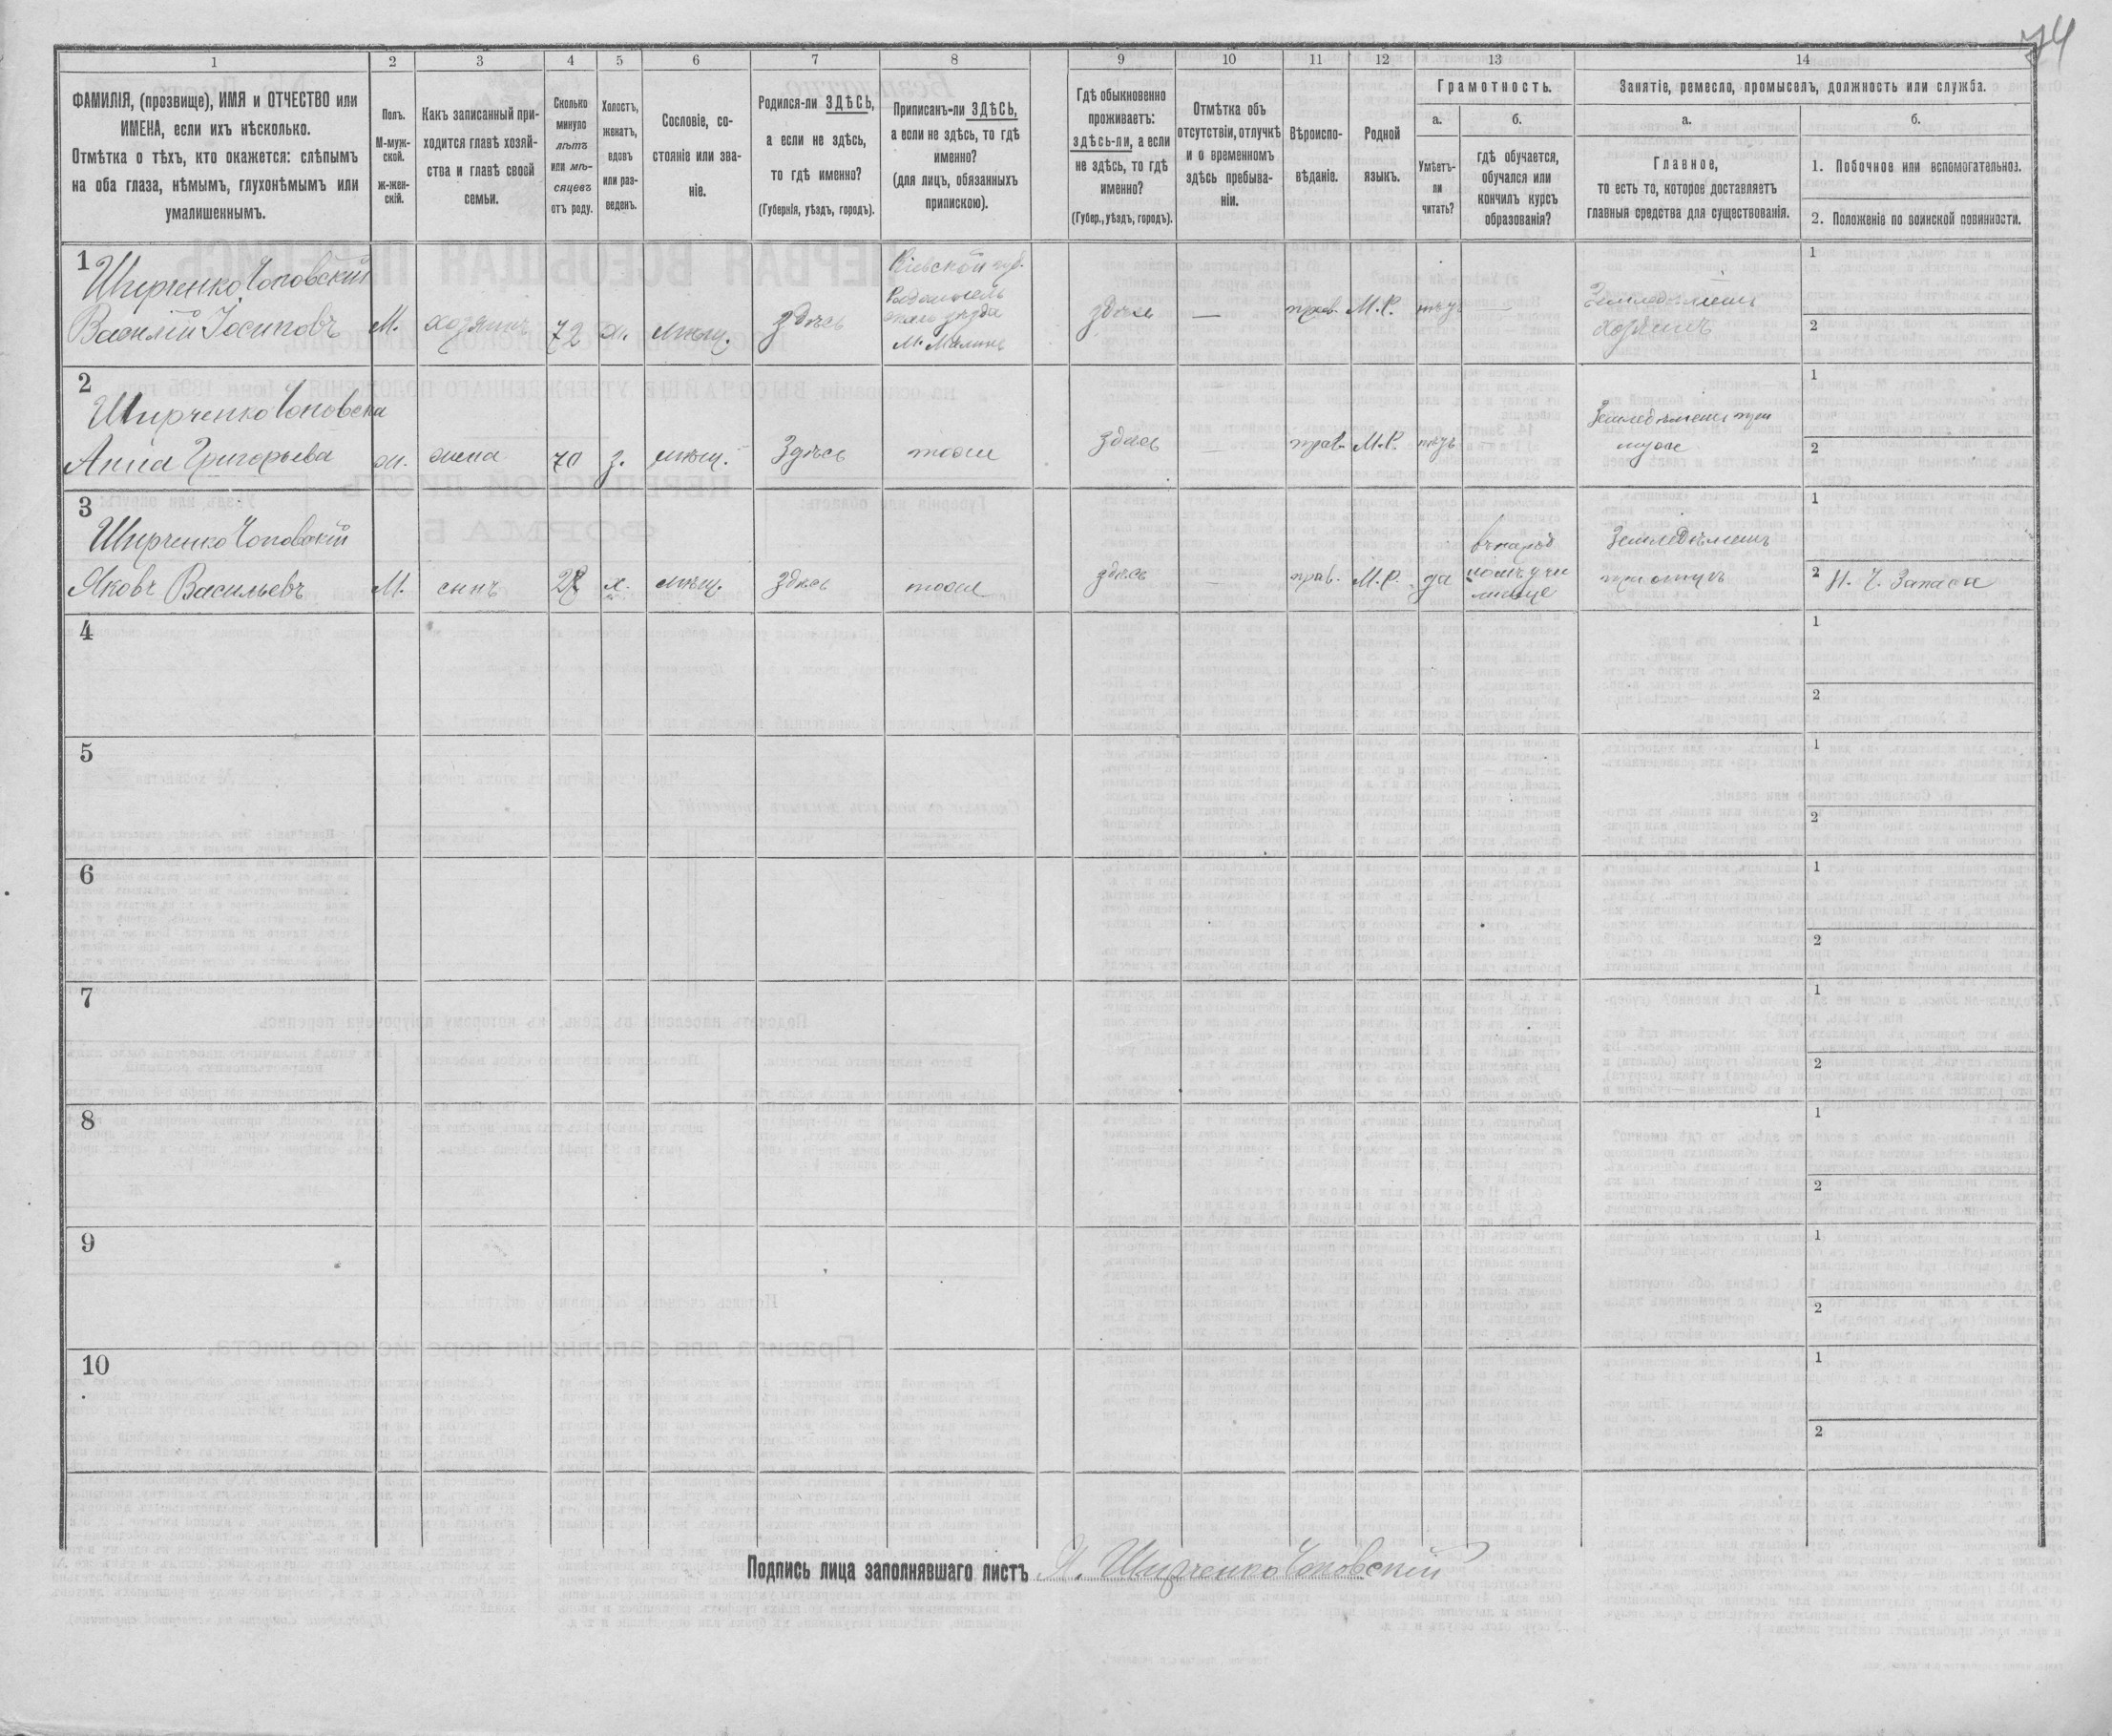 74
1 2 3 4 5 6 7 8 9 10 11 12 13 14
ФАМИЛІЯ, (прозвище), ИМЯ и ОТЧЕСТВО или
ИМЕНА, если ихъ нѣсколько.
Отмѣтка о тѣхъ, кто окажется: слѣпымъ
на оба глаза, нѣмымъ, глухонѣмымъ или
умалишеннымъ.
Полъ.
М-муж-
ской.
ж-жен-
скій.
Какъ записанный при-
ходится главѣ хозяй-
ства и главѣ своей
семьи.
Сколько
минуло
лѣтъ
или мѣ-
сяцевъ
отъ роду.
Холостъ,
женатъ,
вдовъ
или раз-
веденъ.
Сословіе, со-
стояніе или зва-
ніе.
Родился-ли ЗДѢСЬ,
а если не здѣсь,
то гдѣ именно?
(Губернія, уѣздъ, городъ).
Приписанъ-ли ЗДѢСЬ,
а если не здѣсь, то гдѣ
именно?
(для лицъ, обязанныхъ
припискою).
Гдѣ обыкновенно
проживаетъ:
здѣсь-ли, а если
не здѣсь, то гдѣ
именно?
(Губер., уѣздъ, городъ).
Отмѣтка объ
отсутствіи, отлучкѣ
и о временномъ
здѣсь пребыва-
ніи.
Вѣроиспо-
вѣданіе.
Родной
языкъ.
Грамотность.
а.
Умѣетъ-
ли
читать?
б.
гдѣ обучается,
обучался или
кончилъ курсъ
образованія?
Занятіе, ремесло, промыселъ, должность или служба.
а.
Главное,
то есть то, которое доставляетъ
главныя средства для существованія.
б.
1. Побочное или вспомогательное.
2. Положеніе по воинской повинности.
1
Ширченко Чоповскій
Василій Іосиповъ М. хозяинъ 72 ж. мѣщ. здѣсь
Кіевской губ.
Радомысль
уѣзда
М. Малинъ
здѣсь — прав. М.Р. —
Земледѣлецъ
хозяинъ
1
2
2
Ширченко Чоповска
Анна Григорьева ж. жена 70 з. мѣщ. Здѣсь тоже здѣсь — прав. М.Р. —
Земледѣлецъ при
мужѣ
1
2
3
Ширченко Чоповскій
Яковъ Васильевъ М. сынъ х. мѣщ. здѣсь тоже здѣсь — прав. М.Р. да
въ народ
номъ учи
лище
Земледѣлецъ
при отцѣ
1
2 Н. Ч. Запаса
4
1
2
5
1
2
6
1
2
7
1
2
8
1
2
9
1
2
10
1
2
Подпись лица заполнявшаго листъ Я. Ширченко Чоповскій